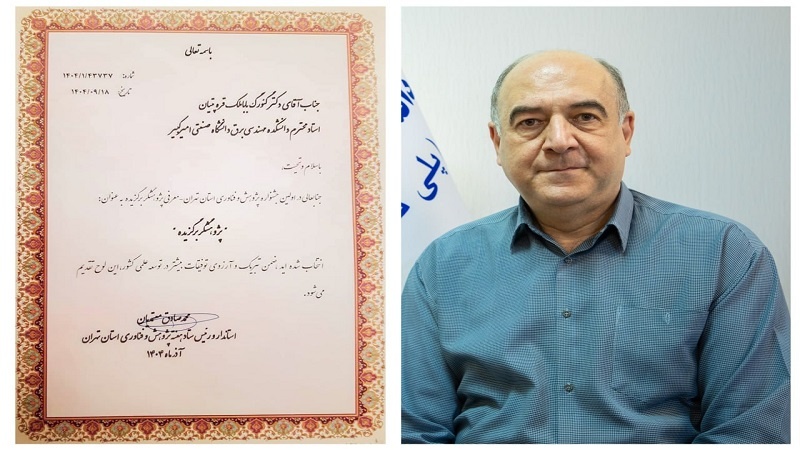 باسمه تعالی
شماره: ۱۴۰۴/۱/۴۳۷۳۷
تاریخ: ۱۴۰۴/۰۹/۱۸
جناب آقای دکتر گئورگ باباملک قره پتیان
استاد محترم دانشکده مهندسی برق دانشگاه صنعتی امیرکبیر
با سلام و تحیت،
جنابعالی در اولین جشنواره پژوهش و فناوری استان تهران - معرفی پژوهشگر برگزیده به عنوان:
"پژوهشگر برگزیده"
انتخاب شده اید، ضمن تبریک و آرزوی توفیقات بیشتر در توسعه علمی کشور، این لوح تقدیم
می شود.
محمد صادق معتمدیان
استاندار و رئیس ستاد هفته پژوهش و فناوری استان تهران
آذر ماه ۱۴۰۴